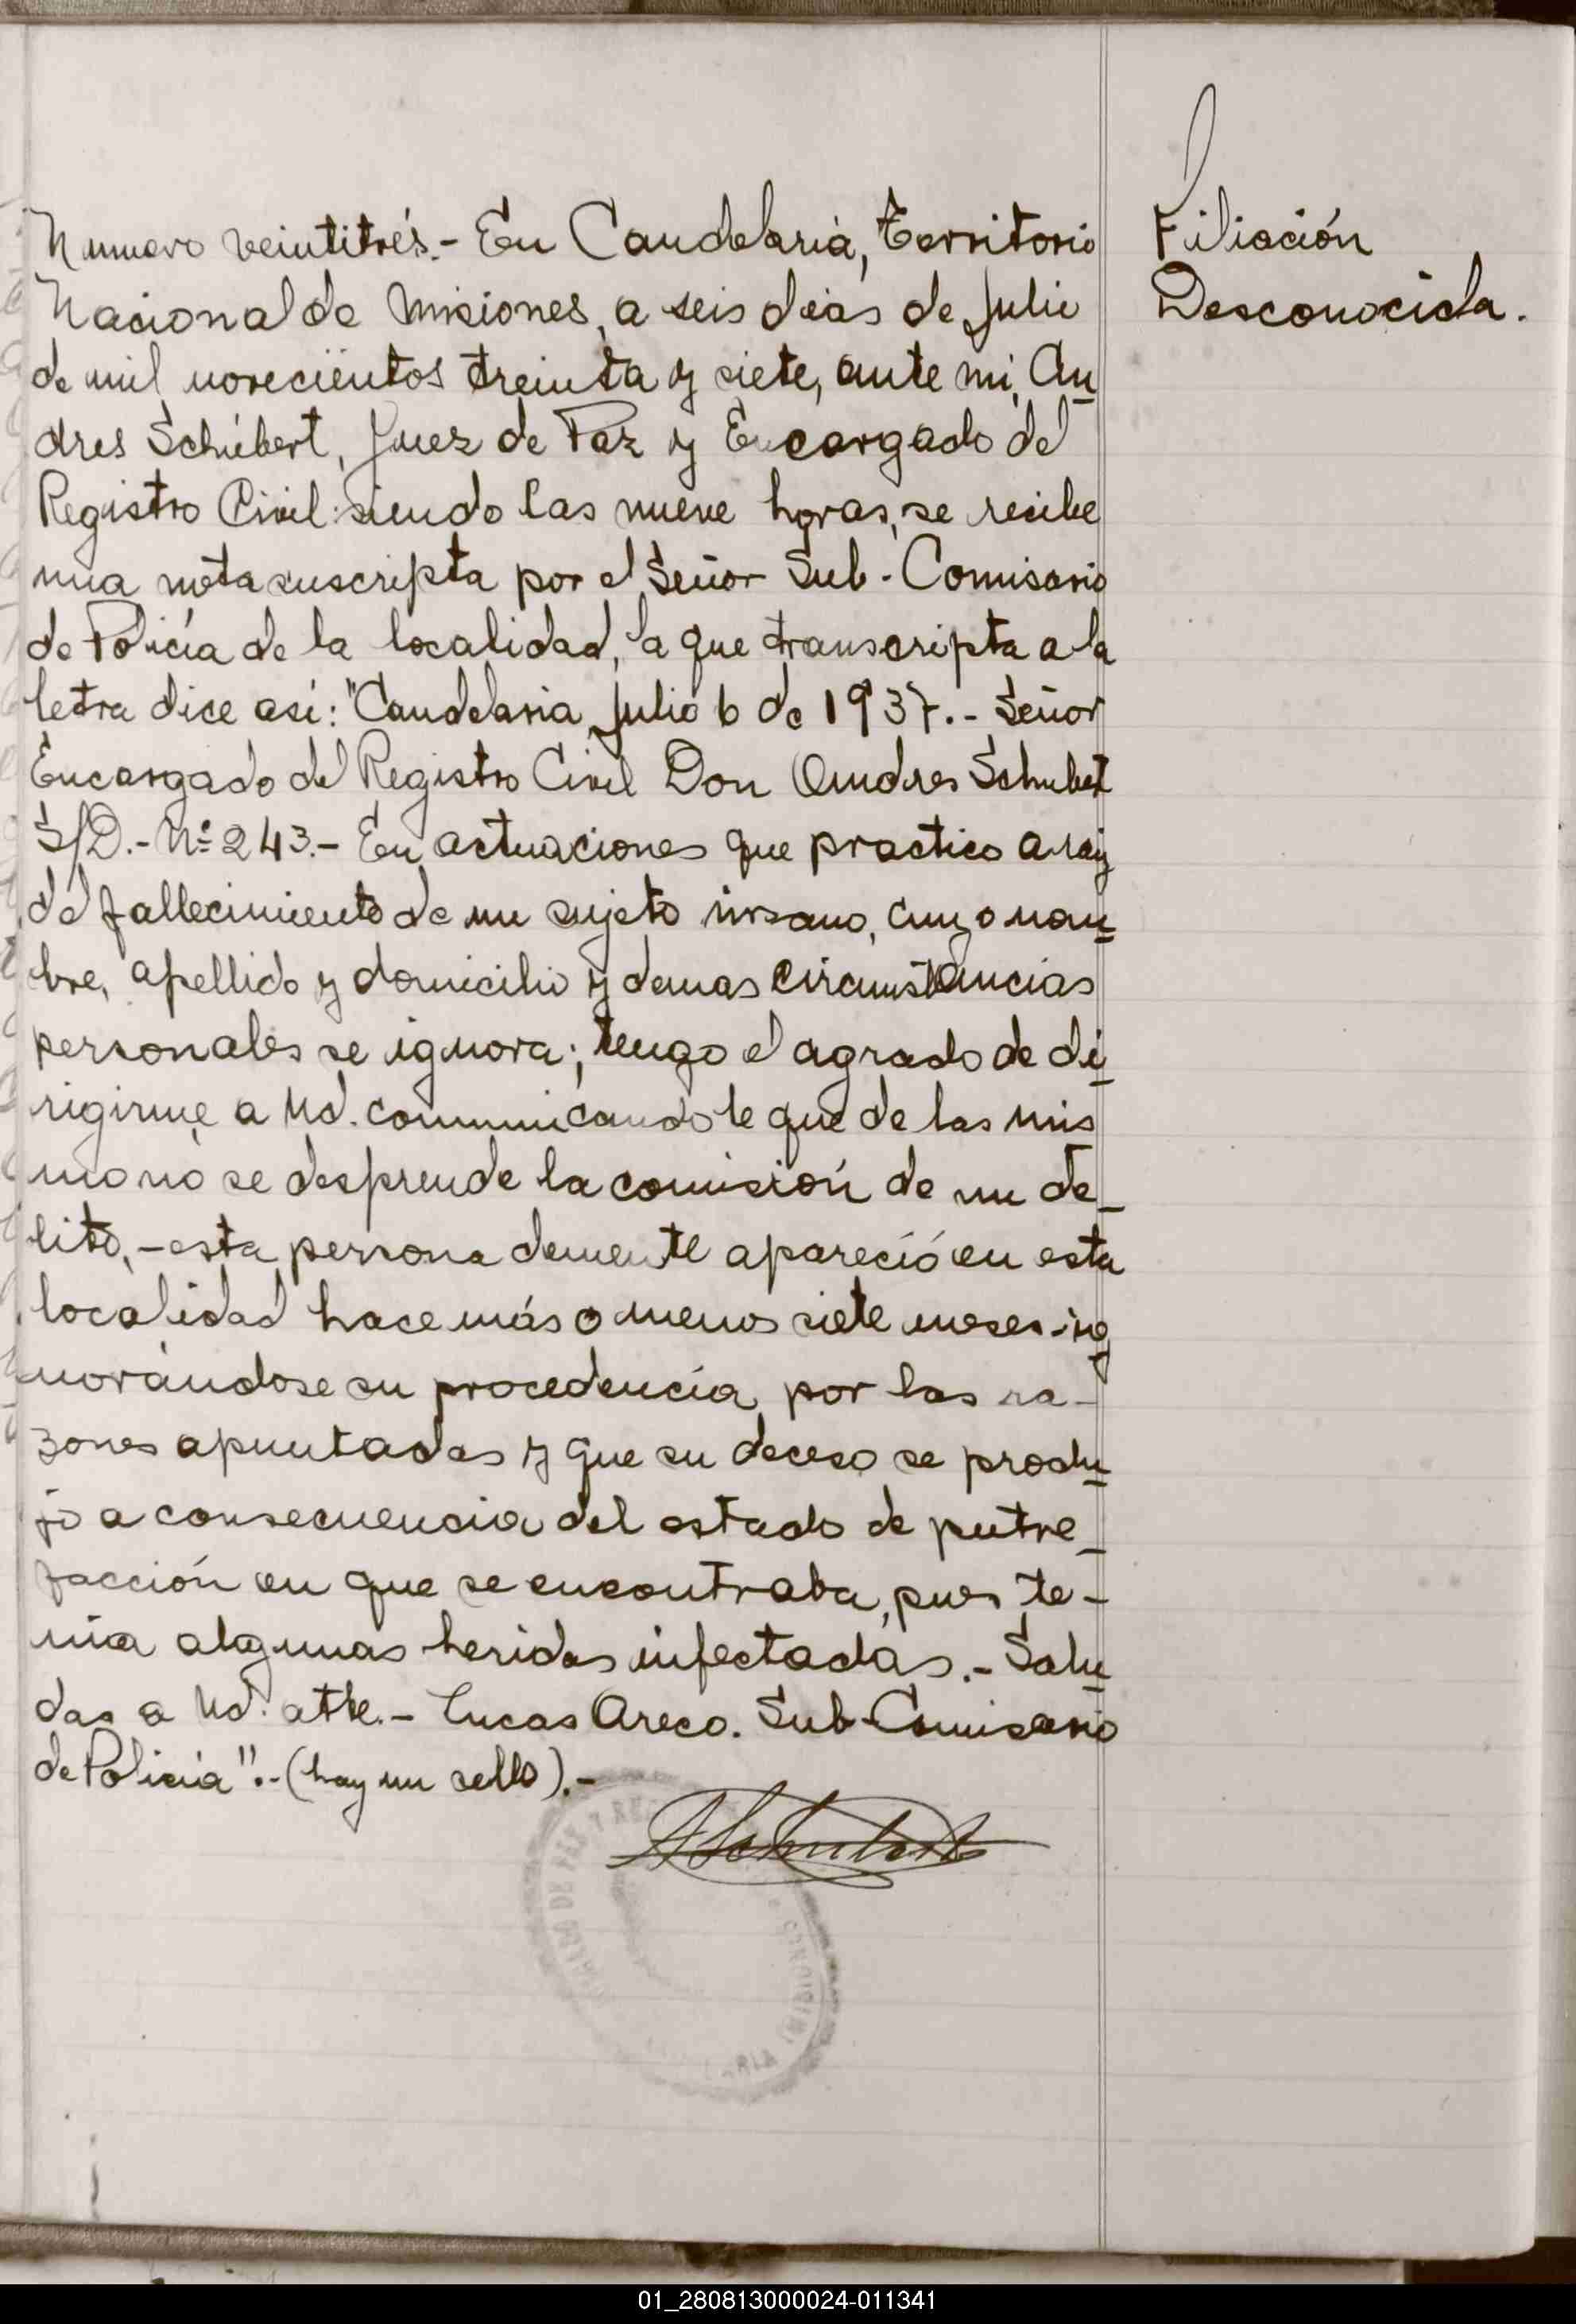 Filiación
Desconocida.
Numero veintitrés.- En Candelaria, Territorio
Nacional de Misiones, a seis dias de Julio
de mil novecientos treinta y siete, ante mi, An-
dres Schubert, Juez de Paz y Encargado del
Registro Civil: siendo las nueve horas, se recibe
una nota suscripta por el Señor Sub-Comisario
de Policía de la localidad, la que transcripta a la
letra dice asi: "Candelaria, Julio 6 de 1937.- Señor
Encargado del Registro Civil Don Andres Schubert
S/D.- Nº 243.- En actuaciones que practico a raiz
del fallecimiento de un sujeto insano, cuyo nom-
bre, apellido y domicilio y demas circunstancias
personales se ignora; tengo el agrado de di-
rigirme a Ud. comunicandole que de las mis
mo no se desprende la comisión de un de-
lito,- esta persona demente apareció en esta
localidad hace más o menos siete meses ig-
norándose su procedencia, por las ra-
zones apuntadas y que su deceso se produ-
jo a consecuencia del estado de putre-
facción en que se encontraba, pues te-
nia algunas heridas infectadas.- Salu-
das a Ud. atte.- Lucas Areco. Sub-Comisario
de Policía".-(hay un sello).-
ASchubert
DE PAZ Y
01_280813000024-011341